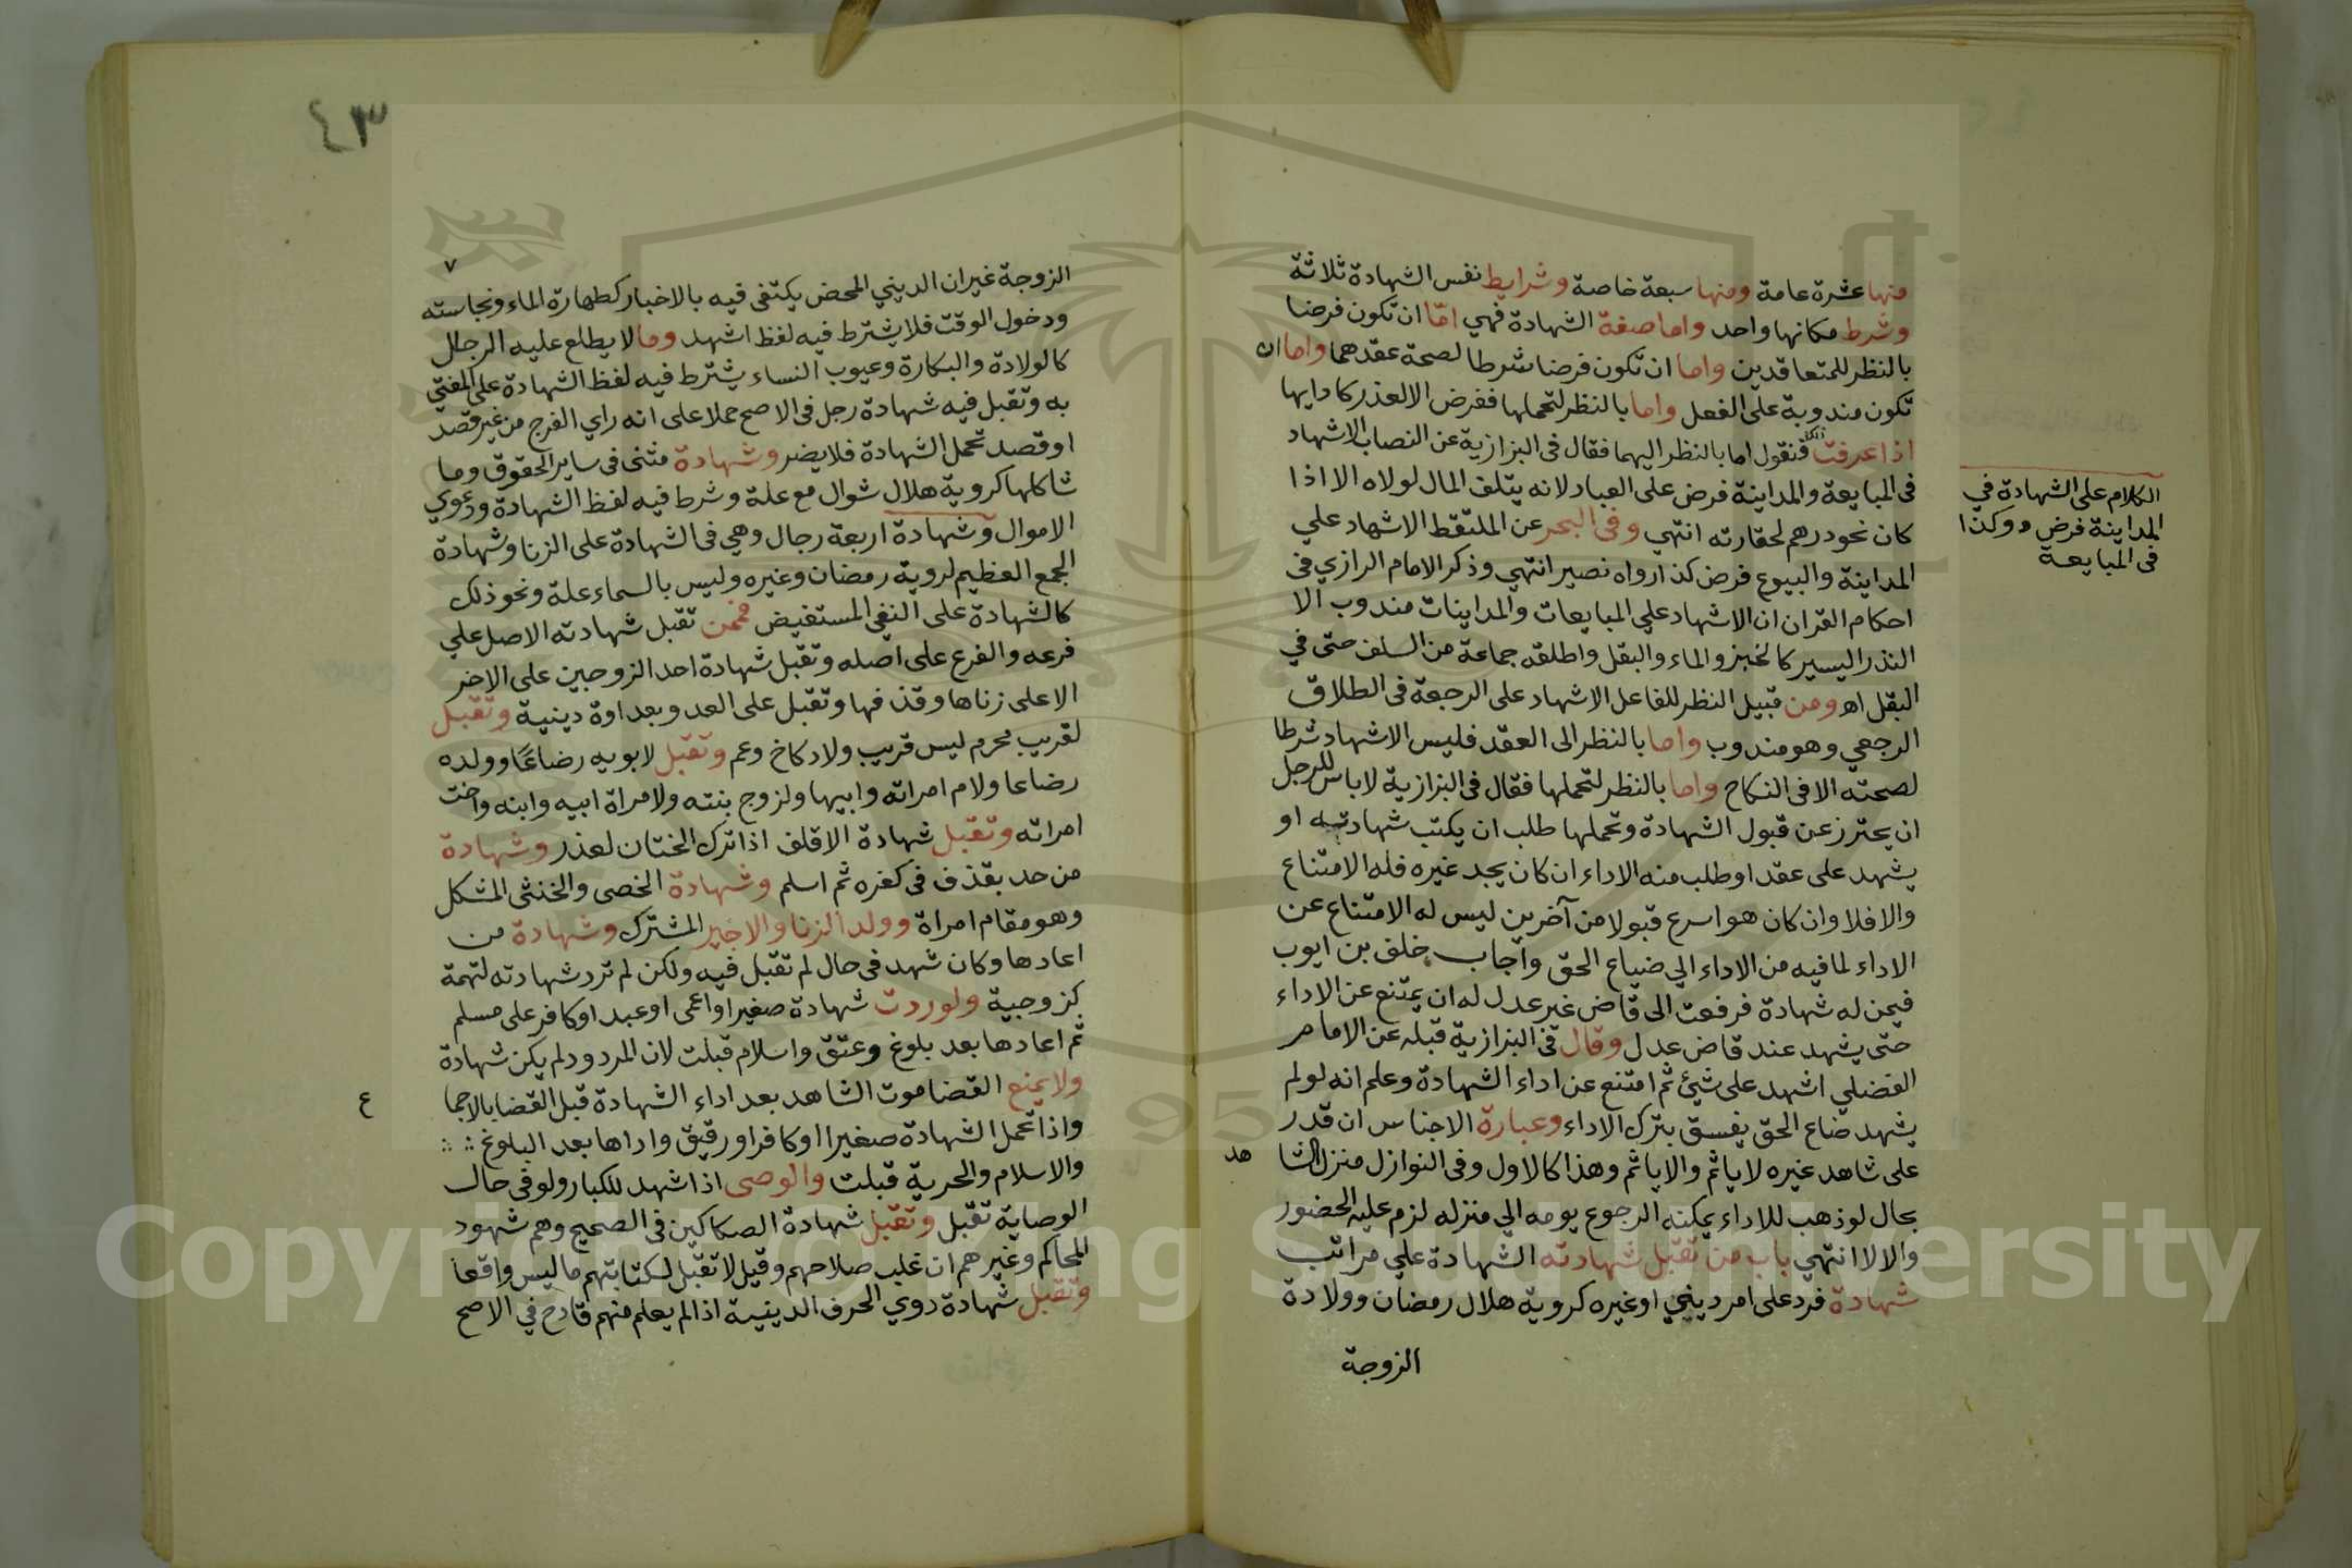 منها عشرة عامة ومنها سبعة خاصة وشرايط نفس الشهادة ثلاثة
وشرط مكانها واحد واما صفة الشهادة فهي امّا ان تكون فرضا
بالنظر للمتعاقدين واما ان تكون فرضا شرطا لصحة عقدهما واما ان
تكون مندوبة على الفعل واما بالنظر لتحملها ففرض الا لعذر كادايها
اذا عرفت ذلك فنقول اما بالنظر اليهما فقال فى البزازية عن النصاب الاشهاد
فى المبايعة والمداينة فرض على العباد لانه يتلف المال لولاه الا اذا
كان نحو درهم لحقارته انتهي وفى البحر عن الملتقط الاشهاد علي
المداينة والبيوع فرض كذا رواه نصير انتهي وذكر الامام الرازي في
احكام القران ان الاشهاد علي المبايعات والمداينات مندوب الا
النذر اليسير كالخبز والماء والبقل واطلقه جماعة من السلف حتى في
البقل اه ومن قبيل النظر للفاعل الاشهاد على الرجعة فى الطلاق
الرجعي وهو مندوب واما بالنظر الى العقد فليس الاشهاد شرطا
لصحته الا فى النكاح واما بالنظر لتحملها فقال فى البزازية لا باس للرجل
ان يحترز عن قبول الشهادة وتحملها طلب ان يكتب شهادته او
يشهد على عقد او طلب منه الاداء ان كان يجد غيره فله الامتناع
والا فلا وان كان هو اسرع قبولا من آخرين ليس له الامتناع عن
الاداء لما فيه من الاداء الي ضياع الحق واجاب خلف بن ايوب
فيمن له شهادة فرفعت الى قاض غير عدل له ان يمتنع عن الاداء
حتى يشهد عند قاض عدل وقال فى البزازية قبله عن الامام
الفضلي اشهد على شئ ثم امتنع عن اداء الشهادة وعلم انه لو لم
يشهد ضاع الحق يفسق بترك الاداء وعبارة الاجناس ان قدر
على شاهد غيره لا ياثم والا ياثم وهذا كالاول وفى النوازل منزل الشا هد
بحال لو ذهب للاداء يمكنه الرجوع يومه الي منزله لزم عليه الحضور
والا لا انتهي باب من تقبل شهادته الشهادة علي مراتب
شهادة فرد على امر ديني او غيره كروية هلال رمضان وولادة
الزوجة
الكلام على الشهادة في
المداينة فرض ووكذا
فى المبايعة
٤٣
٧
الزوجة غير ان الديني المحض يكتفى فيه بالاخبار كطهارة الماء ونجاسته
ودخول الوقت فلا يشترط فيه لفظ اشهد وما لا يطلع عليه الرجال
كالولادة والبكارة وعيوب النساء يشترط فيه لفظ الشهادة على المفتي
به وتقبل فيه شهادة رجل فى الاصح حملا على انه راي الفرج من غير قصد
او قصد تحمل الشهادة فلا يضر وشهادة مثنى فى ساير الحقوق وما
شاكلها كروية هلال شوال مع علة وشرط فيه لفظ الشهادة ودعوي
الاموال وشهادة اربعة رجال وهي فى الشهادة على الزنا وشهادة
الجمع العظيم لروية رمضان وغيره وليس بالسماء علة ونحو ذلك
كالشهادة على النفى المستفيض فمن تقبل شهادته الاصل علي
فرعه والفرع على اصله وتقبل شهادة احد الزوجين على الاخر
الا على زناها وقذفها وتقبل على العدو بعداوة دينية وتقبل
لقريب محرم ليس قريب ولاد كاخ وعم وتقبل لابويه رضاعًا وولده
رضاعا ولام امراته وابيها ولزوج بنته ولامراة ابيه وابنه واخت
امراته وتقبل شهادة الاقلف اذا ترك الختان لعذر وشهادة
من حد بقذف فى كفره ثم اسلم وشهادة الخصى والخنثى المشكل
وهو مقام امراة وولد الزنا والاجير المشترك وشهادة من
اعادها وكان شهد فى حال لم تقبل فيه ولكن لم ترد شهادته لتهمة
كزوجية ولو ردت شهادة صغير او اعمى او عبد او كافر على مسلم
ثم اعادها بعد بلوغ وعتق واسلام قبلت لان المردود لم يكن شهادة
ولا يمنع القضا موت الشاهد بعد اداء الشهادة قبل القضا بالاجما ع
واذا تحمل الشهادة صغيرا او كافرا ورقيق واداها بعد البلوغ
والاسلام والحرية قبلت والوصى اذا شهد للكبار ولو فى حال
الوصاية تقبل وتقبل شهادة الصكاكين فى الصحيح وهم شهود
المحاكم وغيرهم ان غلب صلاحهم وقيل لا تقبل لكتابتهم ما ليس واقعا
وتقبل شهادة ذوي الحرف الدينية اذا لم يعلم منهم قادح في الاصح
Copyright © King Saud University